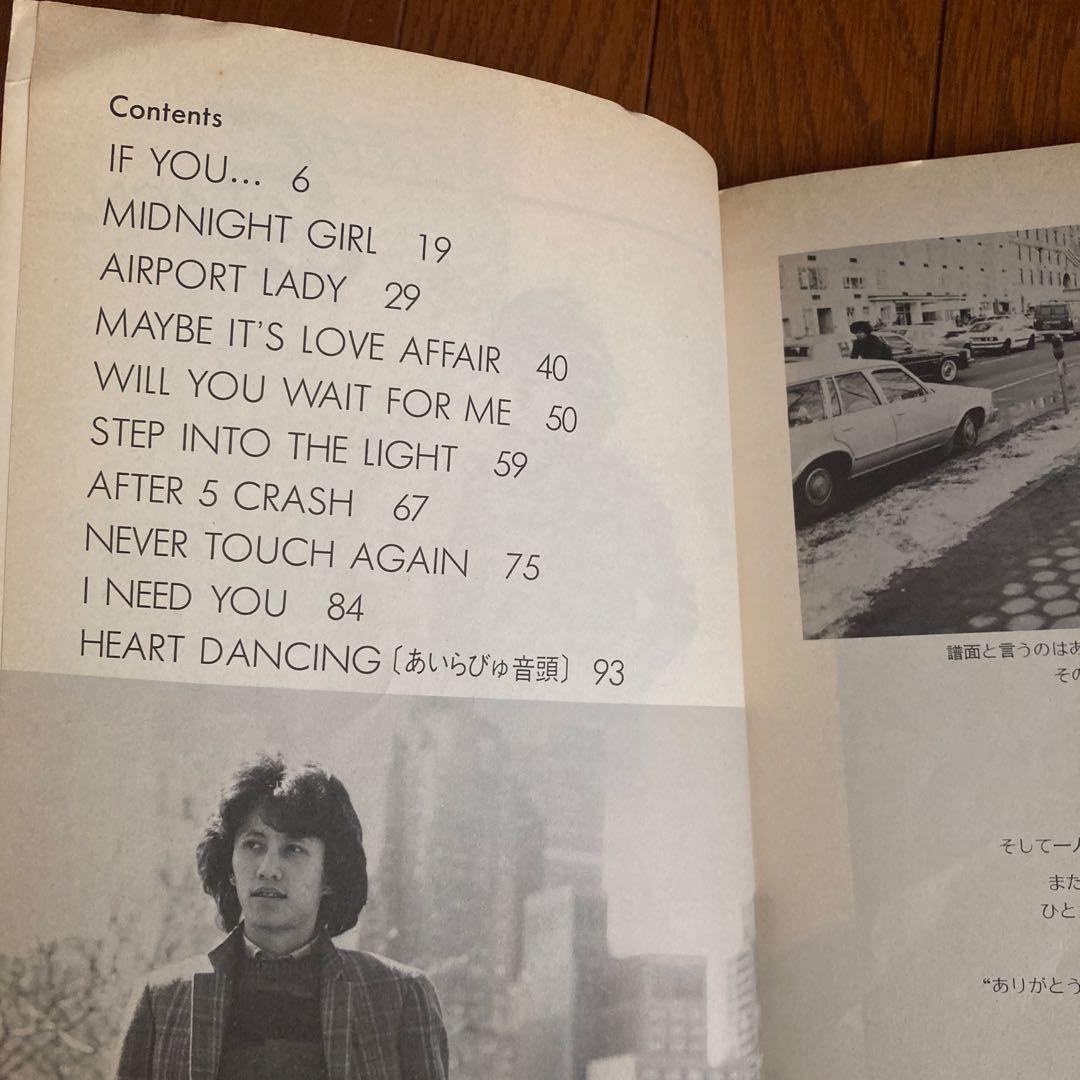 Contents
IF YOU... 6
MIDNIGHT GIRL 19
AIRPORT LADY 29
MAYBE IT'S LOVE AFFAIR 40
WILL YOU WAIT FOR ME 50
STEP INTO THE LIGHT 59
AFTER 5 CRASH 67
NEVER TOUCH AGAIN 75
I NEED YOU 84
HEART DANCING〔あいらびゅ音頭〕 93
譜面と言うのはあ
その
そして一人
また
ひと
“ありがとう